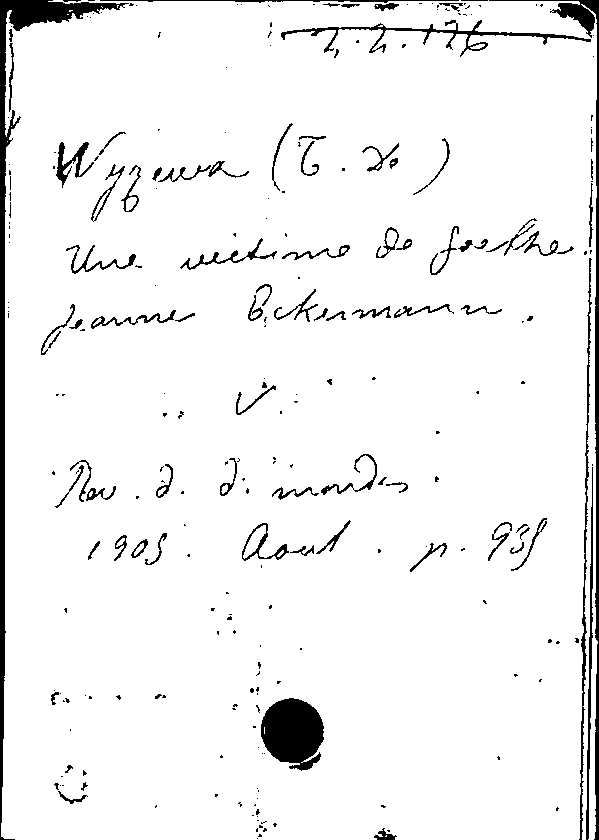 2.2.126
Wyzewa (T. de)
Une victime de Goethe.
Jeanne Eckermann.
Rev. d. d. mondes.
1905. Aout. p. 935